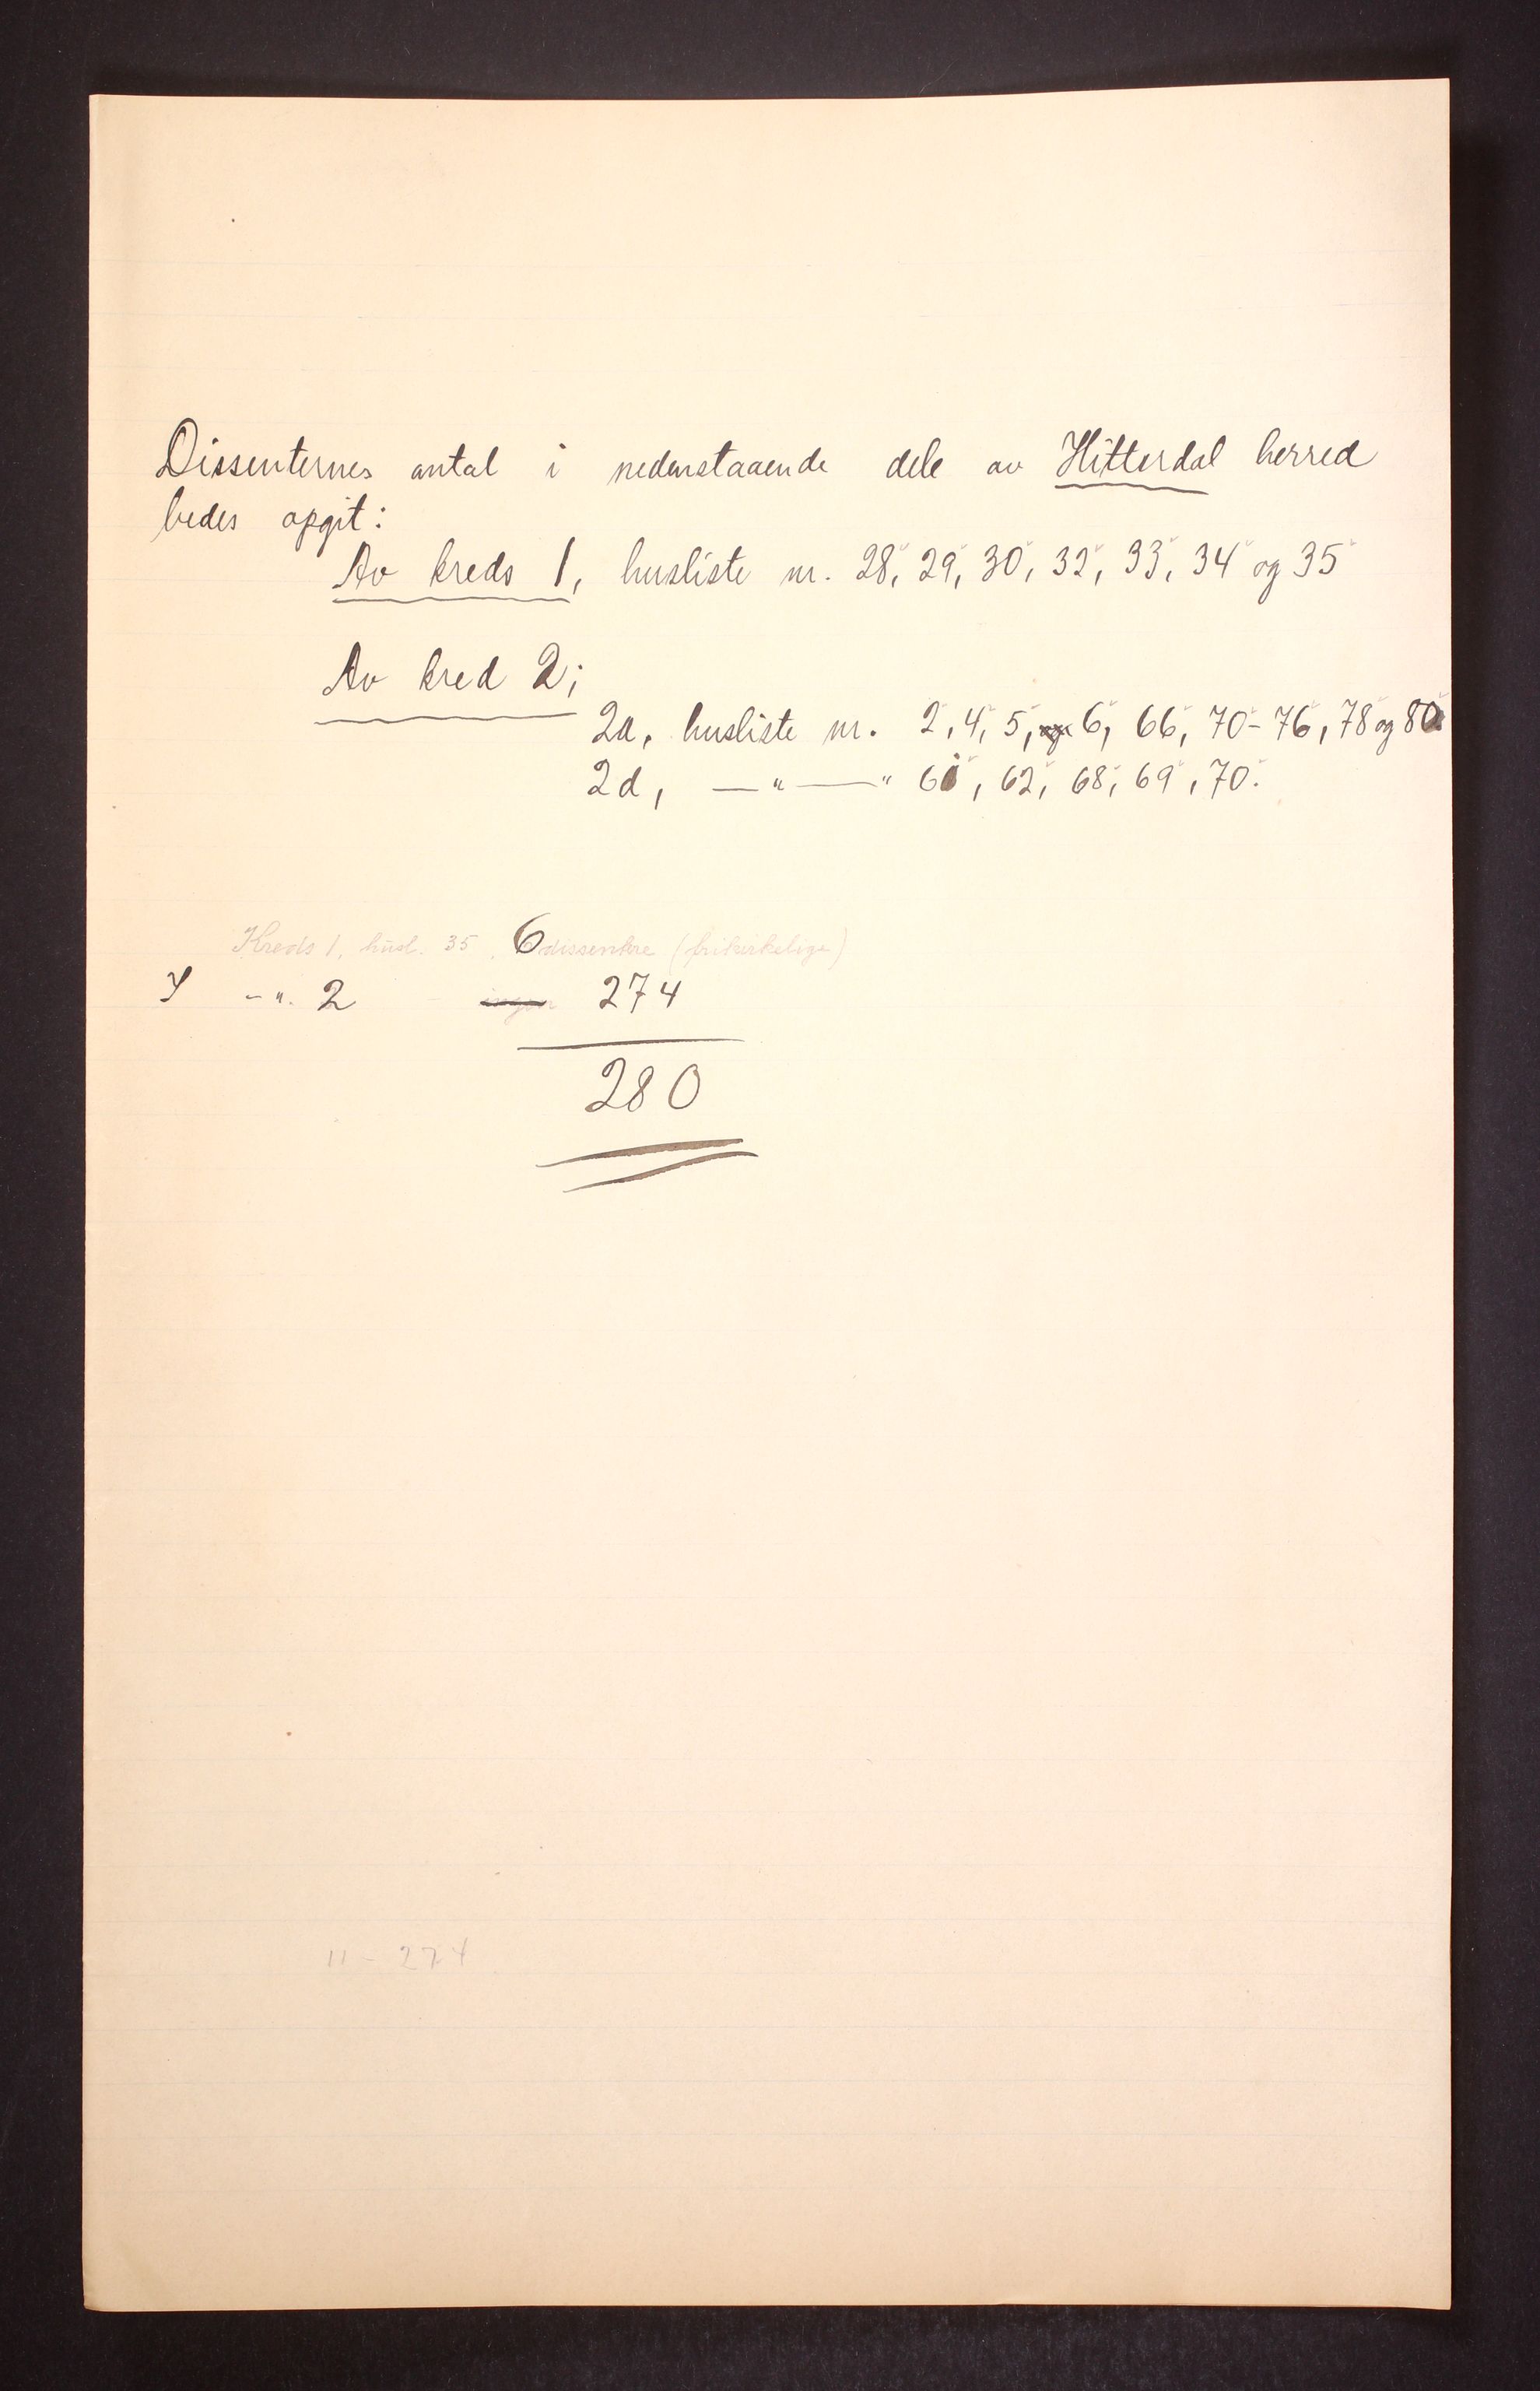 Dissenternes antal i nedenstaaende dele av Hitterdal herred
bedes opgit:
Av kreds 1, husliste nr. 28, 29, 30, 32, 33, 34 og 35
Av kred 2;
2a, husliste nr. 2, 4, 5, og 6, 66, 70-76, 78 og 80.
2d, —"—" 61, 62, 68, 69, 70.
Kreds 1, husl. 35, 6 dissentere (frikirkelige)
I -". 2 - ingen 274
280
11 - 274